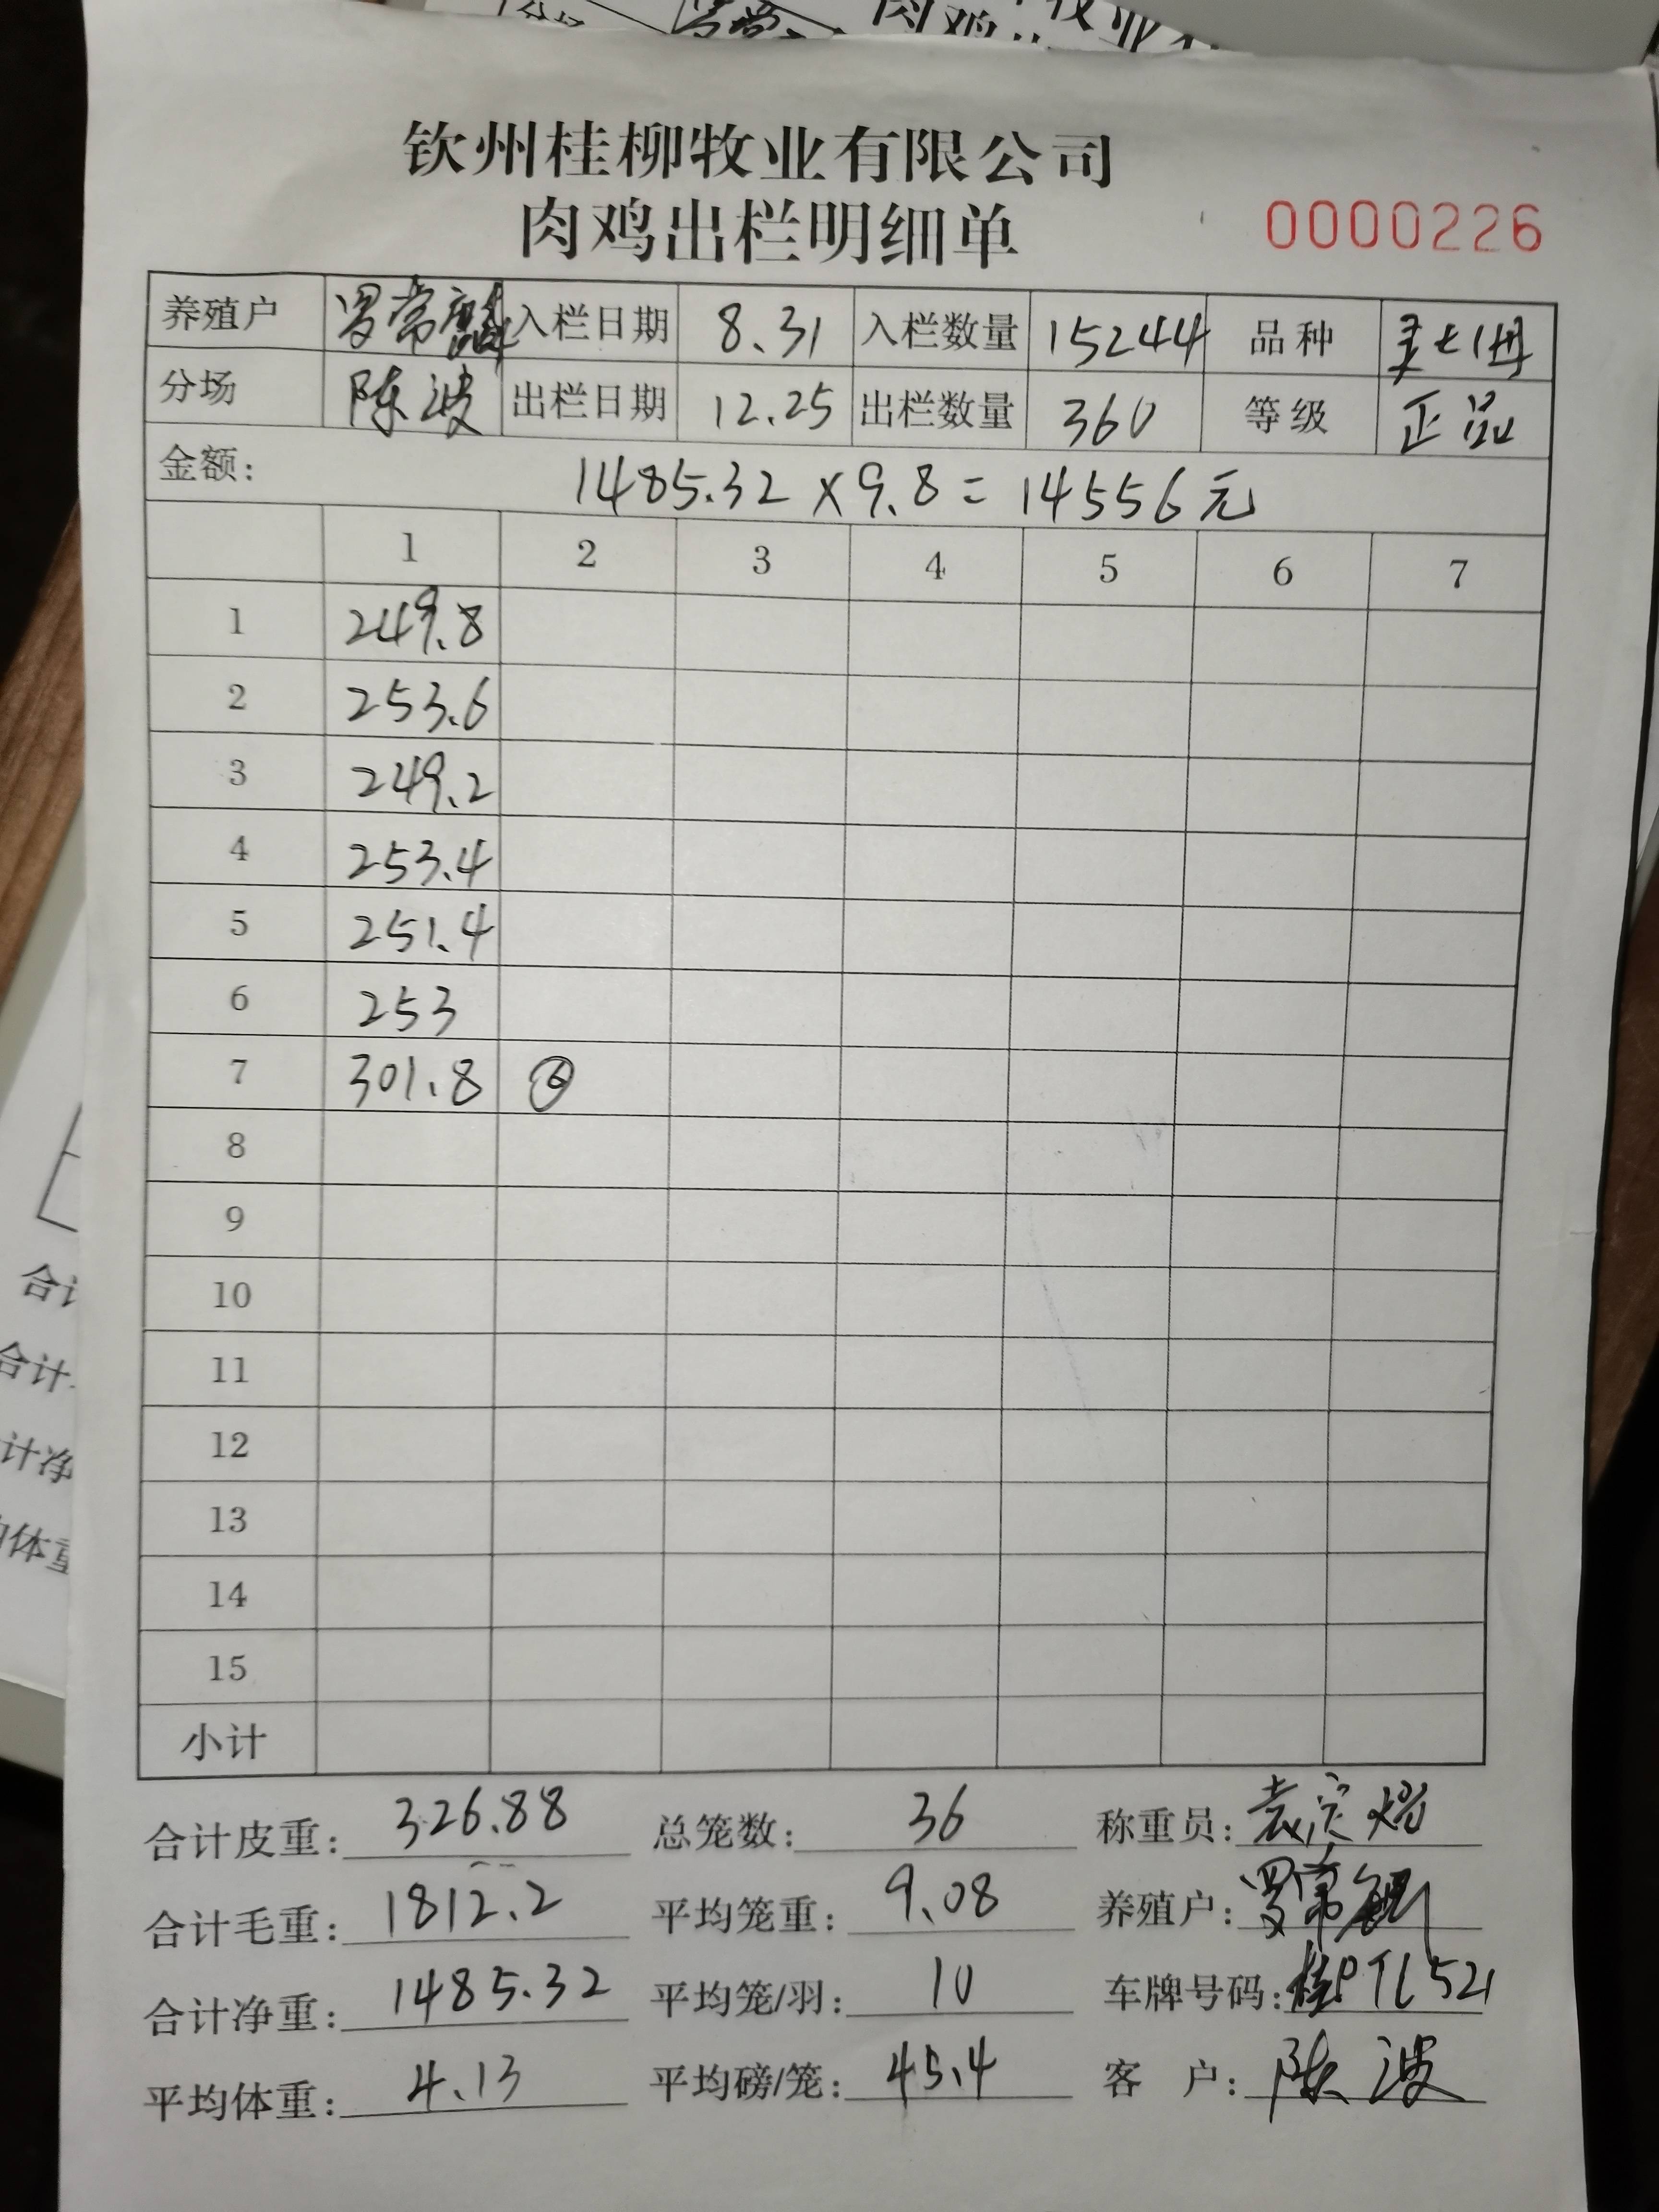 钦州桂柳牧业有限公司
肉鸡出栏明细单 0000226
养殖户 罗常 入栏日期 8.31 入栏数量 15244 品种
分场 陈波 出栏日期 12.25 出栏数量 360 等级 正品
金额: 1485.32×9.8=14556元
1 2 3 4 5 6 7
1 249.8
2 253.6
3 249.2
4 253.4
5 251.4
6 253
7 301.8 ⑥
8
9
10
11
12
13
14
15
小计
合计皮重: 326.88 总笼数: 36 称重员: 袁定
合计毛重: 1812.2 平均笼重: 9.08 养殖户: 罗常
合计净重: 1485.32 平均笼/羽: 10 车牌号码:
平均体重: 4.13 平均磅/笼: 45.4 客户: 陈波
合计
合计
计净
体重